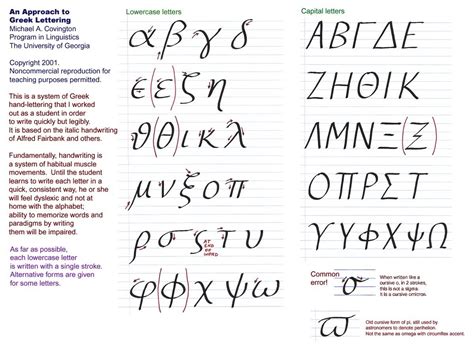 An Approach to
Greek Lettering
Michael A. Covington
Program in Linguistics
The University of Georgia
Copyright 2001.
Noncommercial reproduction for
teaching purposes permitted.
This is a system of Greek
hand-lettering that I worked
out as a student in order
to write quickly but legibly.
It is based on the italic handwriting
of Alfred Fairbank and others.
Fundamentally, handwriting is
a system of habitual muscle
movements. Until the student
learns to write each letter in a
quick, consistent way, he or she
will feel dyslexic and not at
home with the alphabet;
ability to memorize words and
paradigms by writing
them will be impaired.
As far as possible,
each lowercase letter
is written with a single stroke.
Alternative forms are given
for some letters.
Lowercase letters
α β γ δ
ϵ (ε) ξ η
ϑ (θ) ι κ λ
μ ν ξ ο π
ρ σ ς τ υ
AT
END
OF
WORD
φ (ϕ) χ ψ ω
Capital letters
Α Β Γ Δ Ε
Ζ Η Θ Ι Κ
Λ Μ Ν Ξ (Ξ)
Ο Π Ρ Σ Τ
Υ Υ Φ Χ Ψ Ω
Common
error!
σ
When written like a
cursive o, in 2 strokes,
this is not a sigma.
It is a cursive omicron.
ϖ
Old cursive form of pi, still used by
astronomers to denote perihelion.
Not the same as omega with circumflex accent.